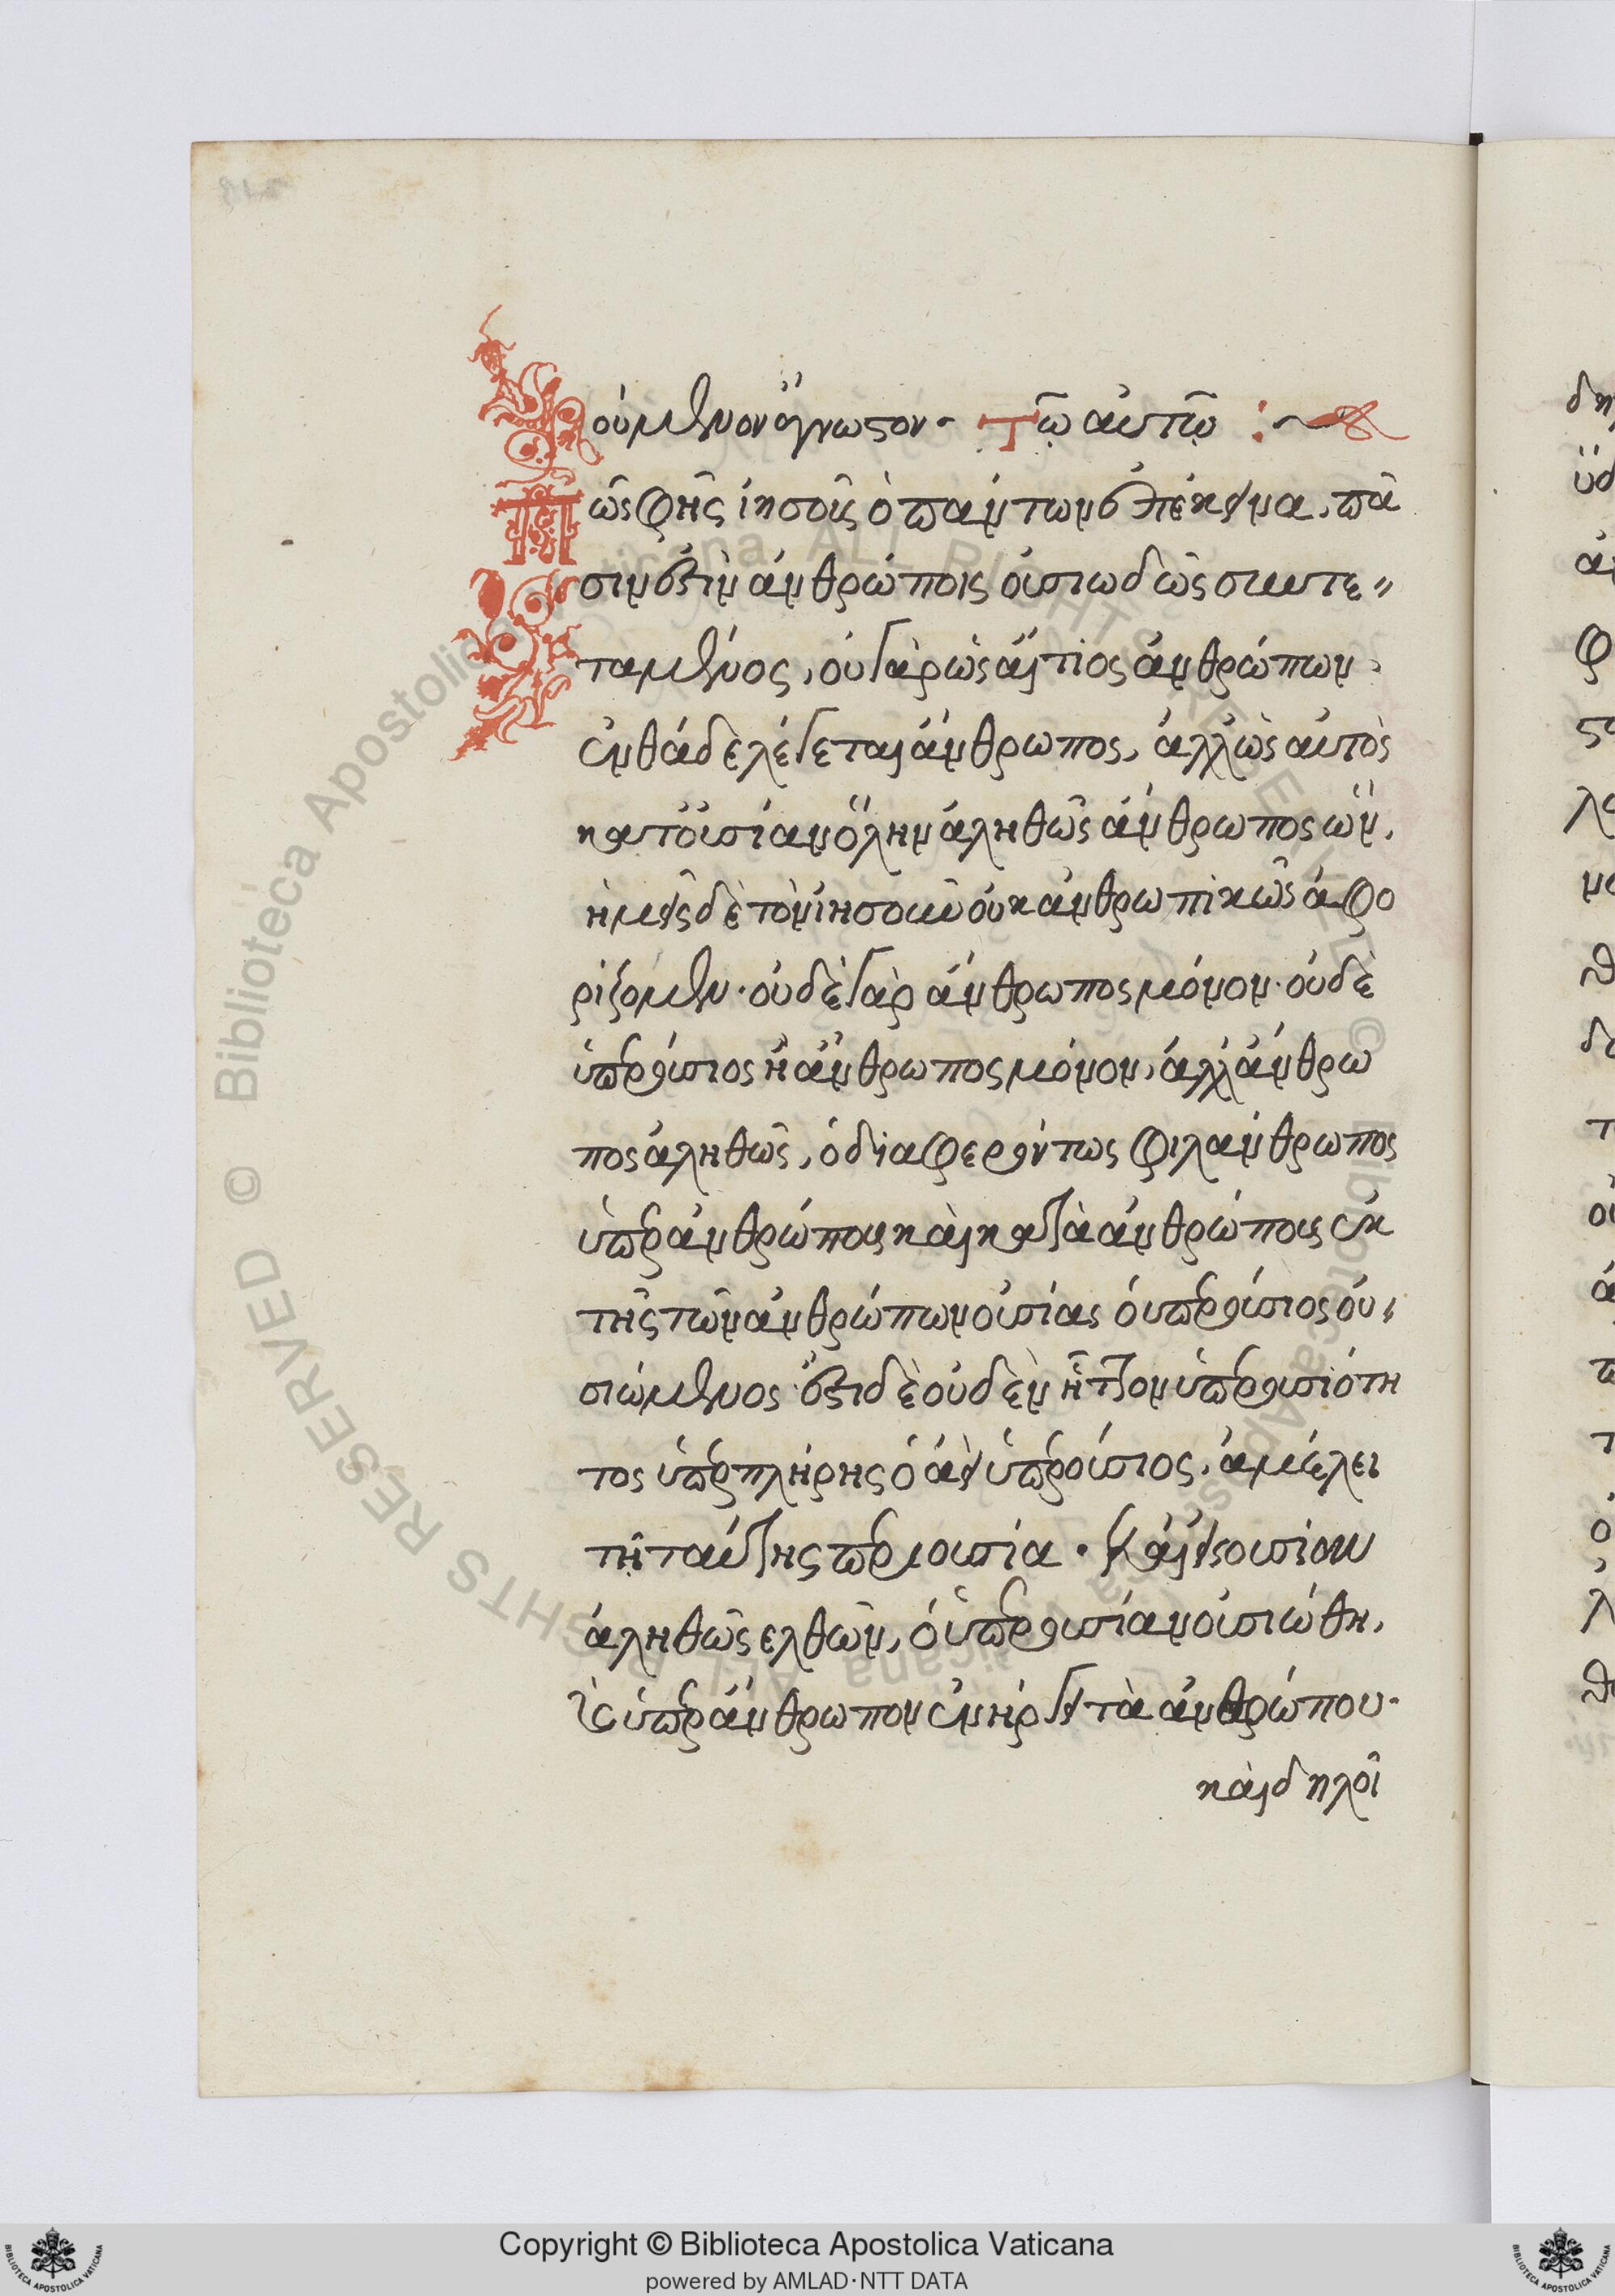 ούμενον άγνωστον. Τῷ αὐτῷ :~
Πῶς φῂς ἰησοῦς ὁ πάντων ἐπέκεινα, πᾶ
σιν ἐστὶν ἀνθρώποις οὐσιωδῶς συντε-
ταγμένος, οὐ γὰρ ὡς αἴτιος ἀνθρώπων
ἐνθάδε λέγεται ἄνθρωπος, ἀλλ' ὡς αὐτὸς
κατ' οὐσίαν ὅλην ἀληθῶς ἄνθρωπος ὤν.
ἡμεῖς δὲ τὸν ἰησοῦν οὐκ ἀνθρωπικῶς ἀφο
ρίζομεν. οὐδὲ γὰρ ἄνθρωπος μόνον. οὐδὲ
ὑπερούσιος ἢ ἄνθρωπος μόνον, ἀλλ' ἄνθρω
πος ἀληθῶς, ὁ διαφερόντως φιλάνθρωπος
ὑπὲρ ἀνθρώπους καὶ κατὰ ἀνθρώπους ἐκ
τῆς τῶν ἀνθρώπων οὐσίας ὁ ὑπερούσιος οὐ-
σιώμενος. ἔστι δὲ οὐδὲν ἧττον ὑπερουσιότη
τος ὑπερπλήρης ὁ ἀεὶ ὑπερούσιος, ἀμέλει
τῇ ταύτης περιουσία. Καὶ εἰς οὐσίαν
ἀληθῶς ελθὼν, ὁ ὑπὲρ οὐσίαν οὐσιώθη,
καὶ ὑπὲρ ἄνθρωπον ἐνήργει τὰ ἀνθρώπου.
καὶ δηλοῖ
Copyright © Biblioteca Apostolica Vaticana
powered by AMLAD·NTT DATA